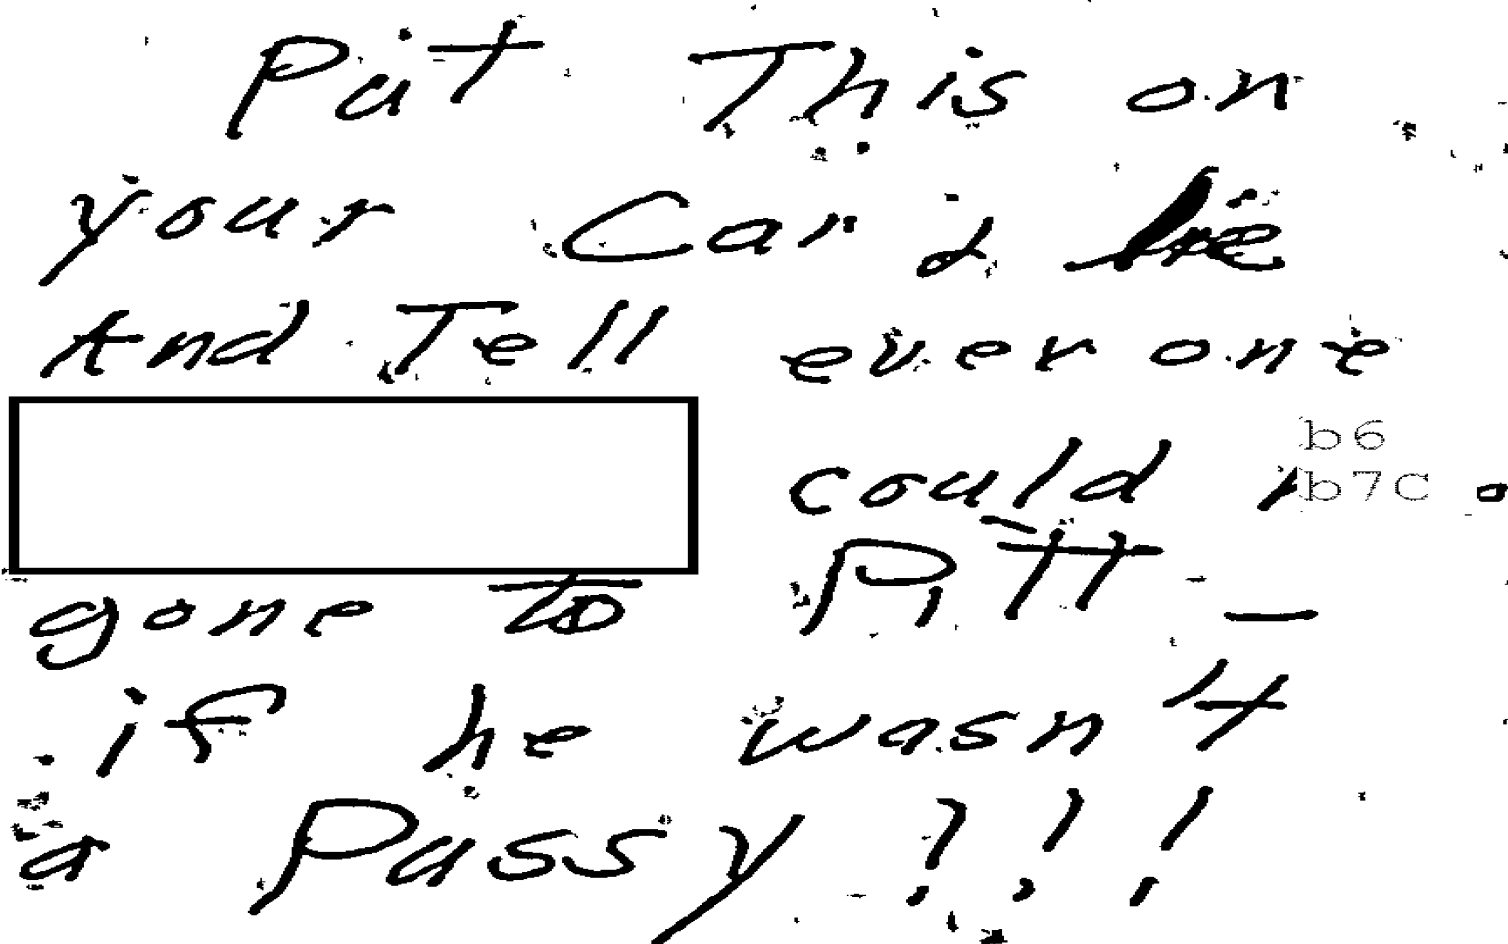 Put This on
your Car &
And Tell ever one
b6
could b7C
gone to Pitt –
if he wasn't
a Pussy !!!